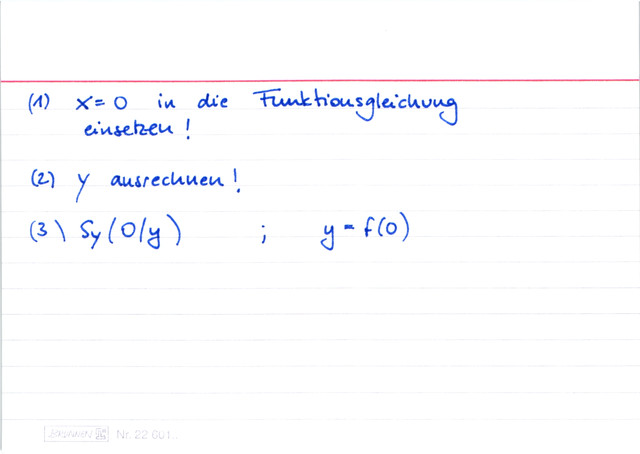 (1) x=0 in die Funktionsgleichung
einsetzen!
(2) y ausrechnen!
(3) Sy(0/y) ; y=f(0)